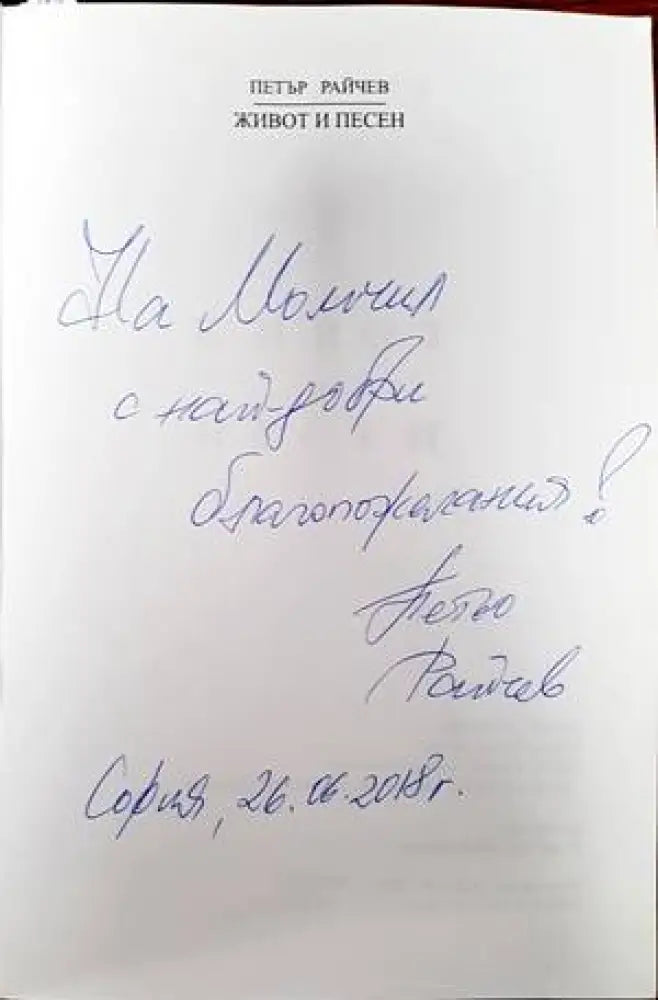 ПЕТЪР РАЙЧЕВ
ЖИВОТ И ПЕСЕН
На Момчил
с най-добри
благопожелания!
Петьо
Райчев
София, 26.06.2018 г.